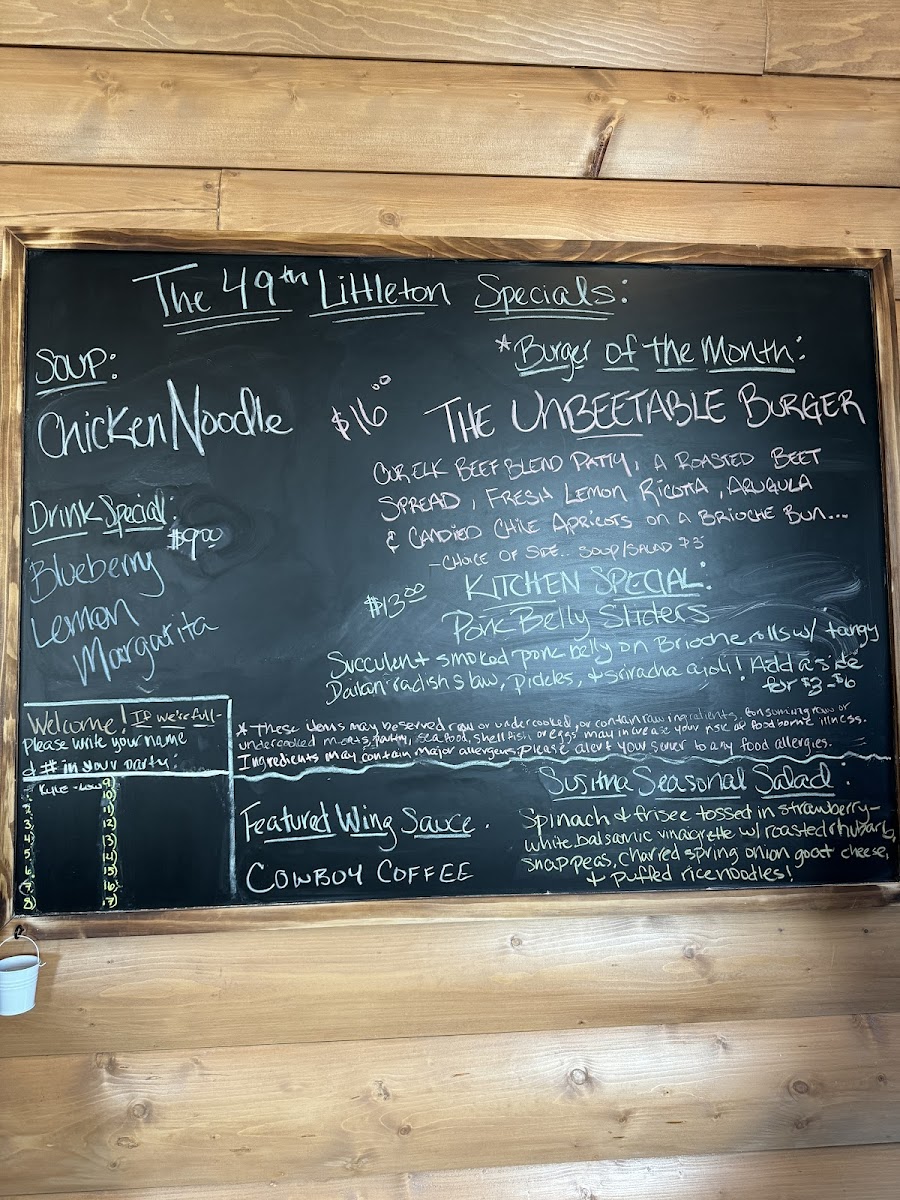 The 49th Littleton Specials:
Soup:
Chicken Noodle
Drink Special:
$9.00
Blueberry
Lemon
Margarita
*Burger of the Month:
$16.00 THE UNBEETABLE BURGER
OUR ELK BEEF BLEND PATTY, A ROASTED BEET
SPREAD, FRESH LEMON RICOTTA, ARUGULA
& CANDIED CHILE APRICOTS ON A BRIOCHE BUN...
-CHOICE OF SIDE.. SOUP/SALAD $3
KITCHEN SPECIAL:
$13.00 Pork Belly Sliders
Succulent smoked pork belly on Brioche rolls w/ tangy
Daikan radish slaw, pickles, + sriracha aioli! Add a side
for $3-$6
*These items may be served raw or undercooked, or contain raw ingredients. Consuming raw or
undercooked meats, poultry, seafood, shellfish or eggs may increase your risk of foodborne illness.
Ingredients may contain major allergens. Please alert your server to any food allergies.
Welcome! If we're full-
Please write your name
& # in your party:
Kyle -
1
2
3
4
5
6
7
8
9
10
11
12
13
14
15
16
17
Featured Wing Sauce.
COWBOY COFFEE
Susitna Seasonal Salad:
Spinach & frisee tossed in strawberry-
white balsamic vinagrette w/ roasted rhubarb,
snap peas, charred spring onion goat cheese,
+ puffed rice noodles!